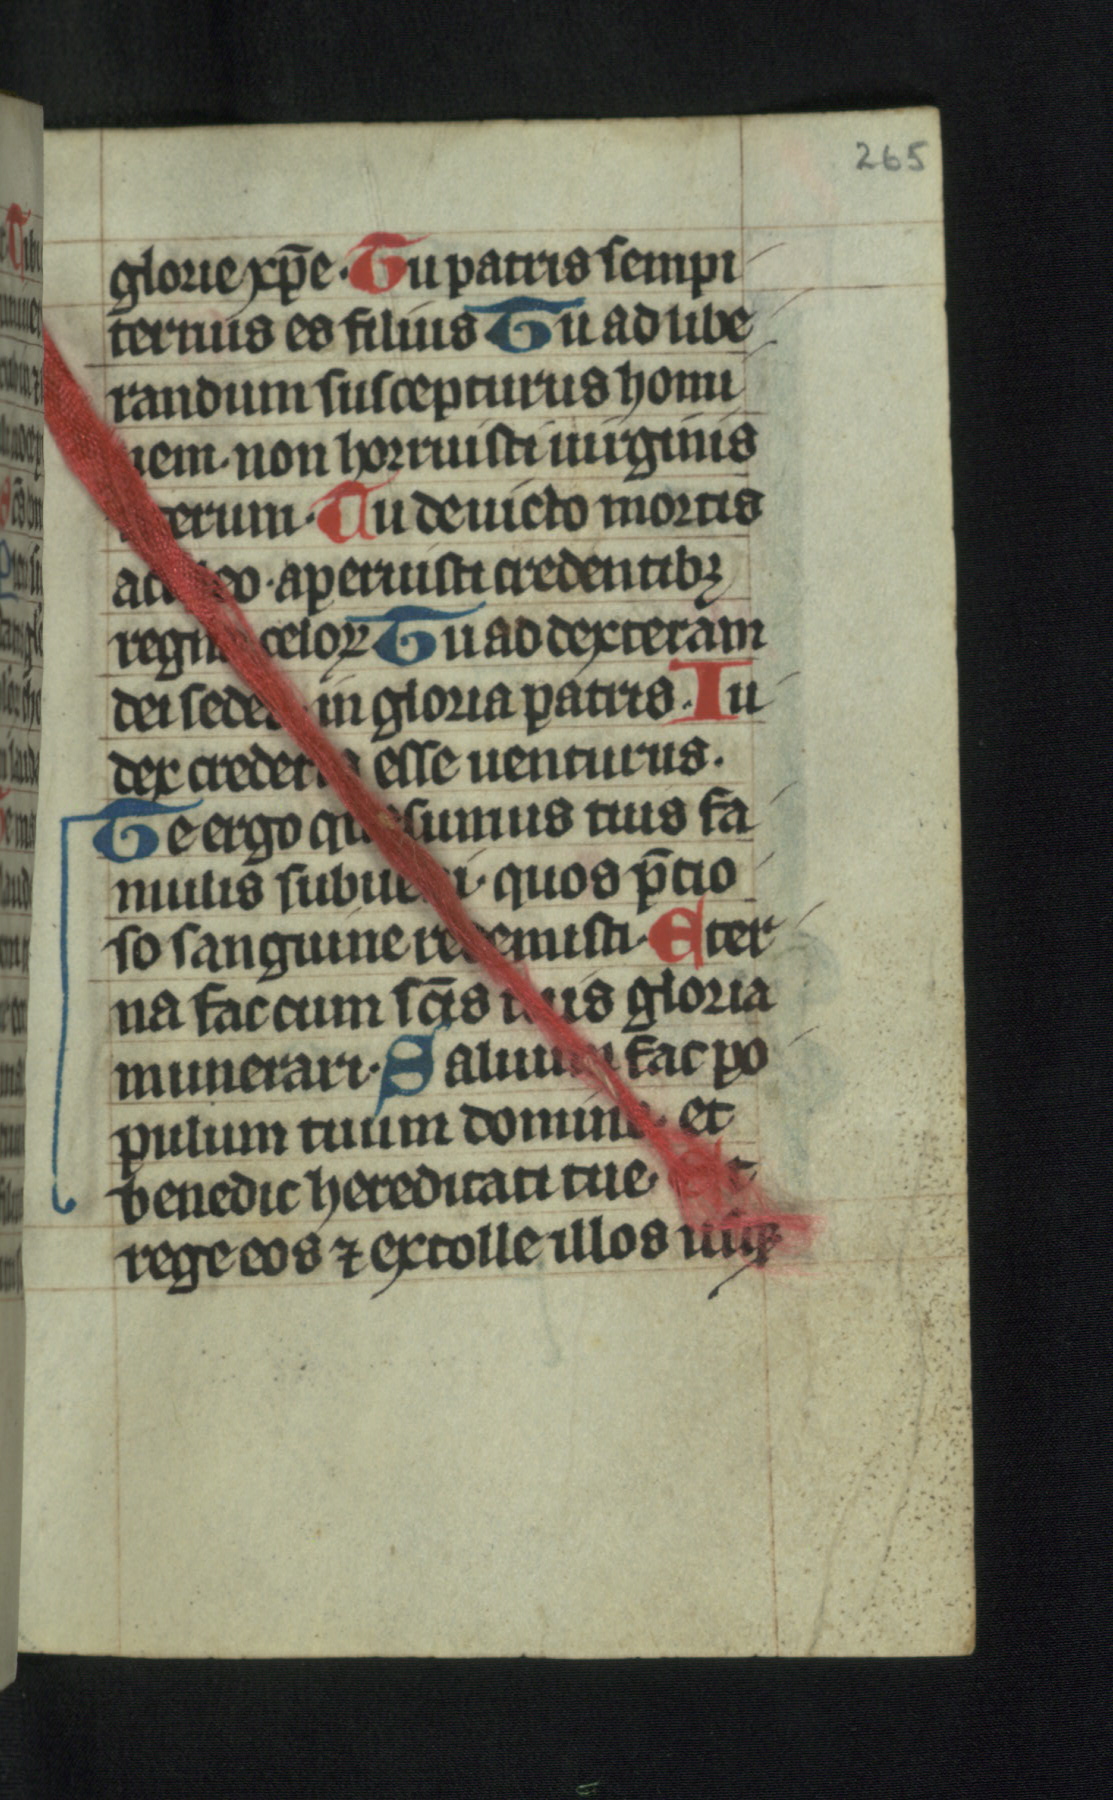 265
glorie xp̄e · Tu patris sempi
ternus es filius Tu ad libe
randum suscepturus homi
nem · non horruisti uirginis
uterum · Tu deuicto mortis
aculeo · aperuisti credentibꝫ
regna celoꝝ Tu ad dexteram
dei sedes in gloria patris · Iu
dex crederis esse uenturus ·
Te ergo quesumus tuis fa
mulis subueni · quos p̄cio
so sanguine redemisti · Eter
na fac cum sc̄is tuis gloria
munerari · Saluum fac po
pulum tuum domine · et
benedic hereditati tue · Et
rege eos ⁊ extolle illos usqꝫ